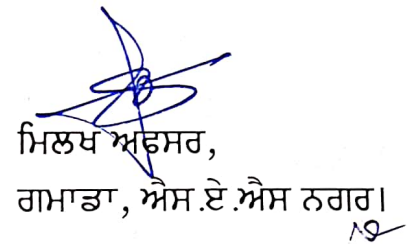 ਮਿਲਖ ਅਫਸਰ,
ਗਮਾਡਾ, ਐਸ.ਏ.ਐਸ ਨਗਰ।